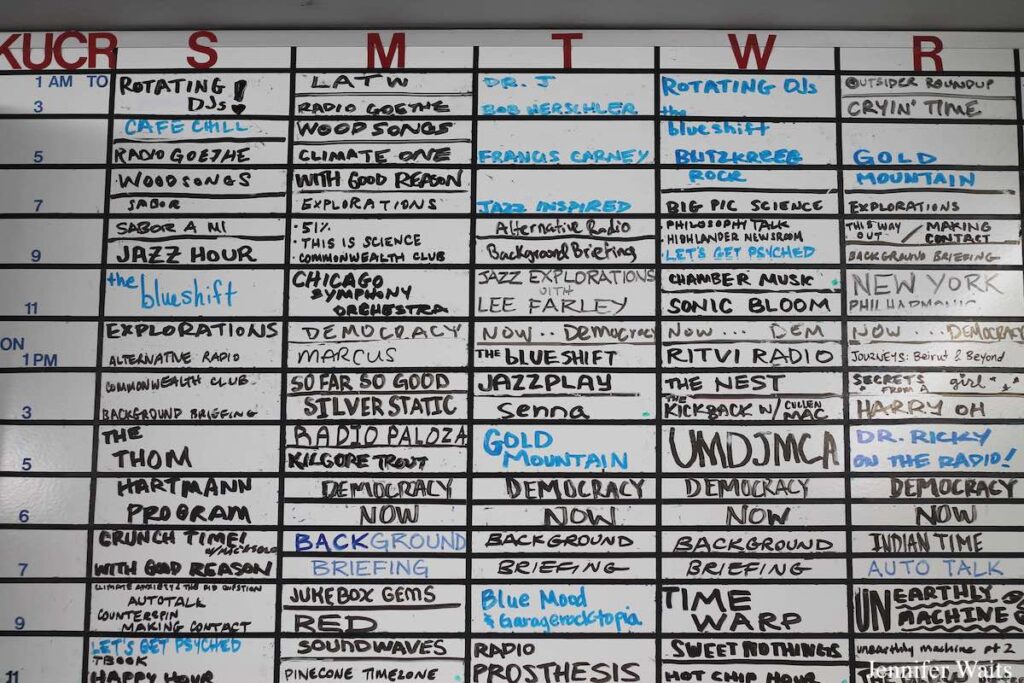 KUCR S M T W R
1 AM TO ROTATING LATW DR. J ROTATING DJs OUTSIDER ROUNDUP
3 DJs! RADIO GOETHE BOB HERSCHLER the CRYIN' TIME
CAFE CHILL WOODSONGS blueshift
5 RADIO GOETHE CLIMATE ONE FRANCIS CARNEY BLITZKREEG GOLD
WOODSONGS WITH GOOD REASON ROCK MOUNTAIN
7 SABOR EXPLORATIONS JAZZ INSPIRED BIG PIC SCIENCE EXPLORATIONS
SABOR A MI • 51% Alternative Radio • PHILOSOPHY TALK THIS WAY OUT / MAKING CONTACT
• THIS IS SCIENCE • HIGHLANDER NEWSROOM
9 JAZZ HOUR • COMMONWEALTH CLUB Background Briefing • LET'S GET PSYCHED BACKGROUND BRIEFING
the CHICAGO JAZZ EXPLORATIONS CHAMBER MUSIC NEW YORK
blueshift SYMPHONY WITH
11 ORCHESTRA LEE FARLEY SONIC BLOOM PHILHARMONIC
ON EXPLORATIONS DEMOCRACY NOW.. Democracy NOW... DEM NOW... DEMOCRACY
1 PM ALTERNATIVE RADIO MARCUS THE BLUESHIFT RITVI RADIO JOURNEYS: Beirut & Beyond
COMMONWEALTH CLUB SO FAR SO GOOD JAZZPLAY THE NEST SECRETS FROM A girl
3 BACKGROUND BRIEFING SILVER STATIC Senna THE KICKBACK W/ CULLEN MAC HARRY OH
THE RADIO PALOZA GOLD UMDJMCA DR. RICKY
5 THOM KILGORE TROUT MOUNTAIN ON THE RADIO!
HARTMANN DEMOCRACY DEMOCRACY DEMOCRACY DEMOCRACY
6 PROGRAM NOW NOW NOW NOW
CRUNCH TIME! BACKGROUND BACKGROUND BACKGROUND INDIAN TIME
7 WITH GOOD REASON BRIEFING BRIEFING BRIEFING AUTO TALK
CLIMATE ANXIETY & THE KID QUESTION JUKEBOX GEMS Blue Mood TIME UNEARTHLY
AUTOTALK
COUNTERSPIN
9 MAKING CONTACT RED & Garagerocktopia WARP MACHINE
LET'S GET PSYCHED SOUNDWAVES RADIO SWEET NOTHINGS unearthly machine pt 2
TBOOK
11 HAPPY HOUR PINECONE TIMEZONE PROSTHESIS HOT CHIP HOUR
Jennifer Waits